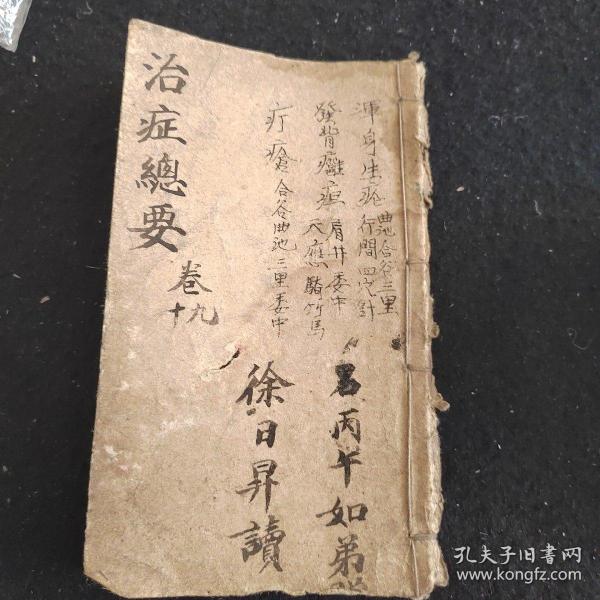 渾身生疮
曲池合谷三里
行間四穴針
發背癰疽
肩井委中
天應騎竹馬
疔瘡合谷曲池三里委中
丙午如弟
徐日昇讀
治症總要
卷
十九
孔夫子旧书网
www.kongfz.com